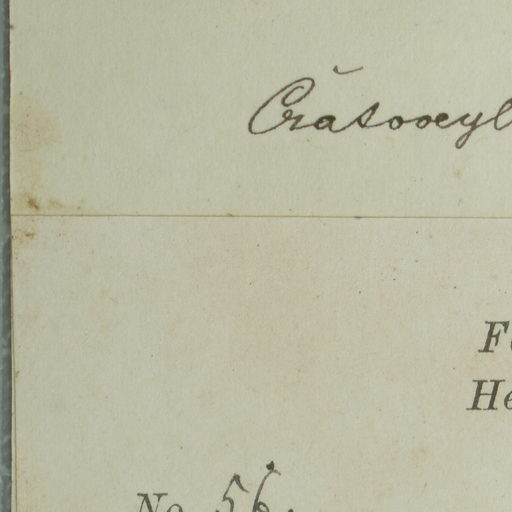 Crătoxyl
F
He
No 56.